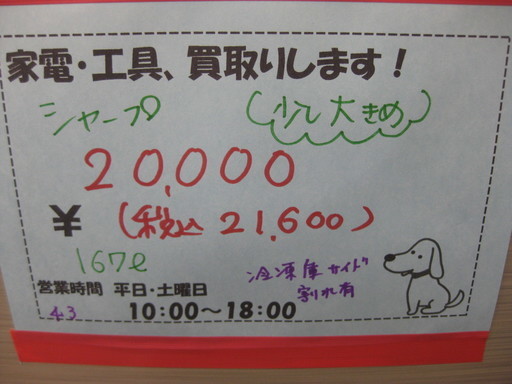 家電・工具、買取りします！
シャープ (少し大きめ)
20,000
¥ (税込 21,600)
167ℓ
冷凍庫サイド
割れ有
営業時間 平日・土曜日
43 10:00～18:00